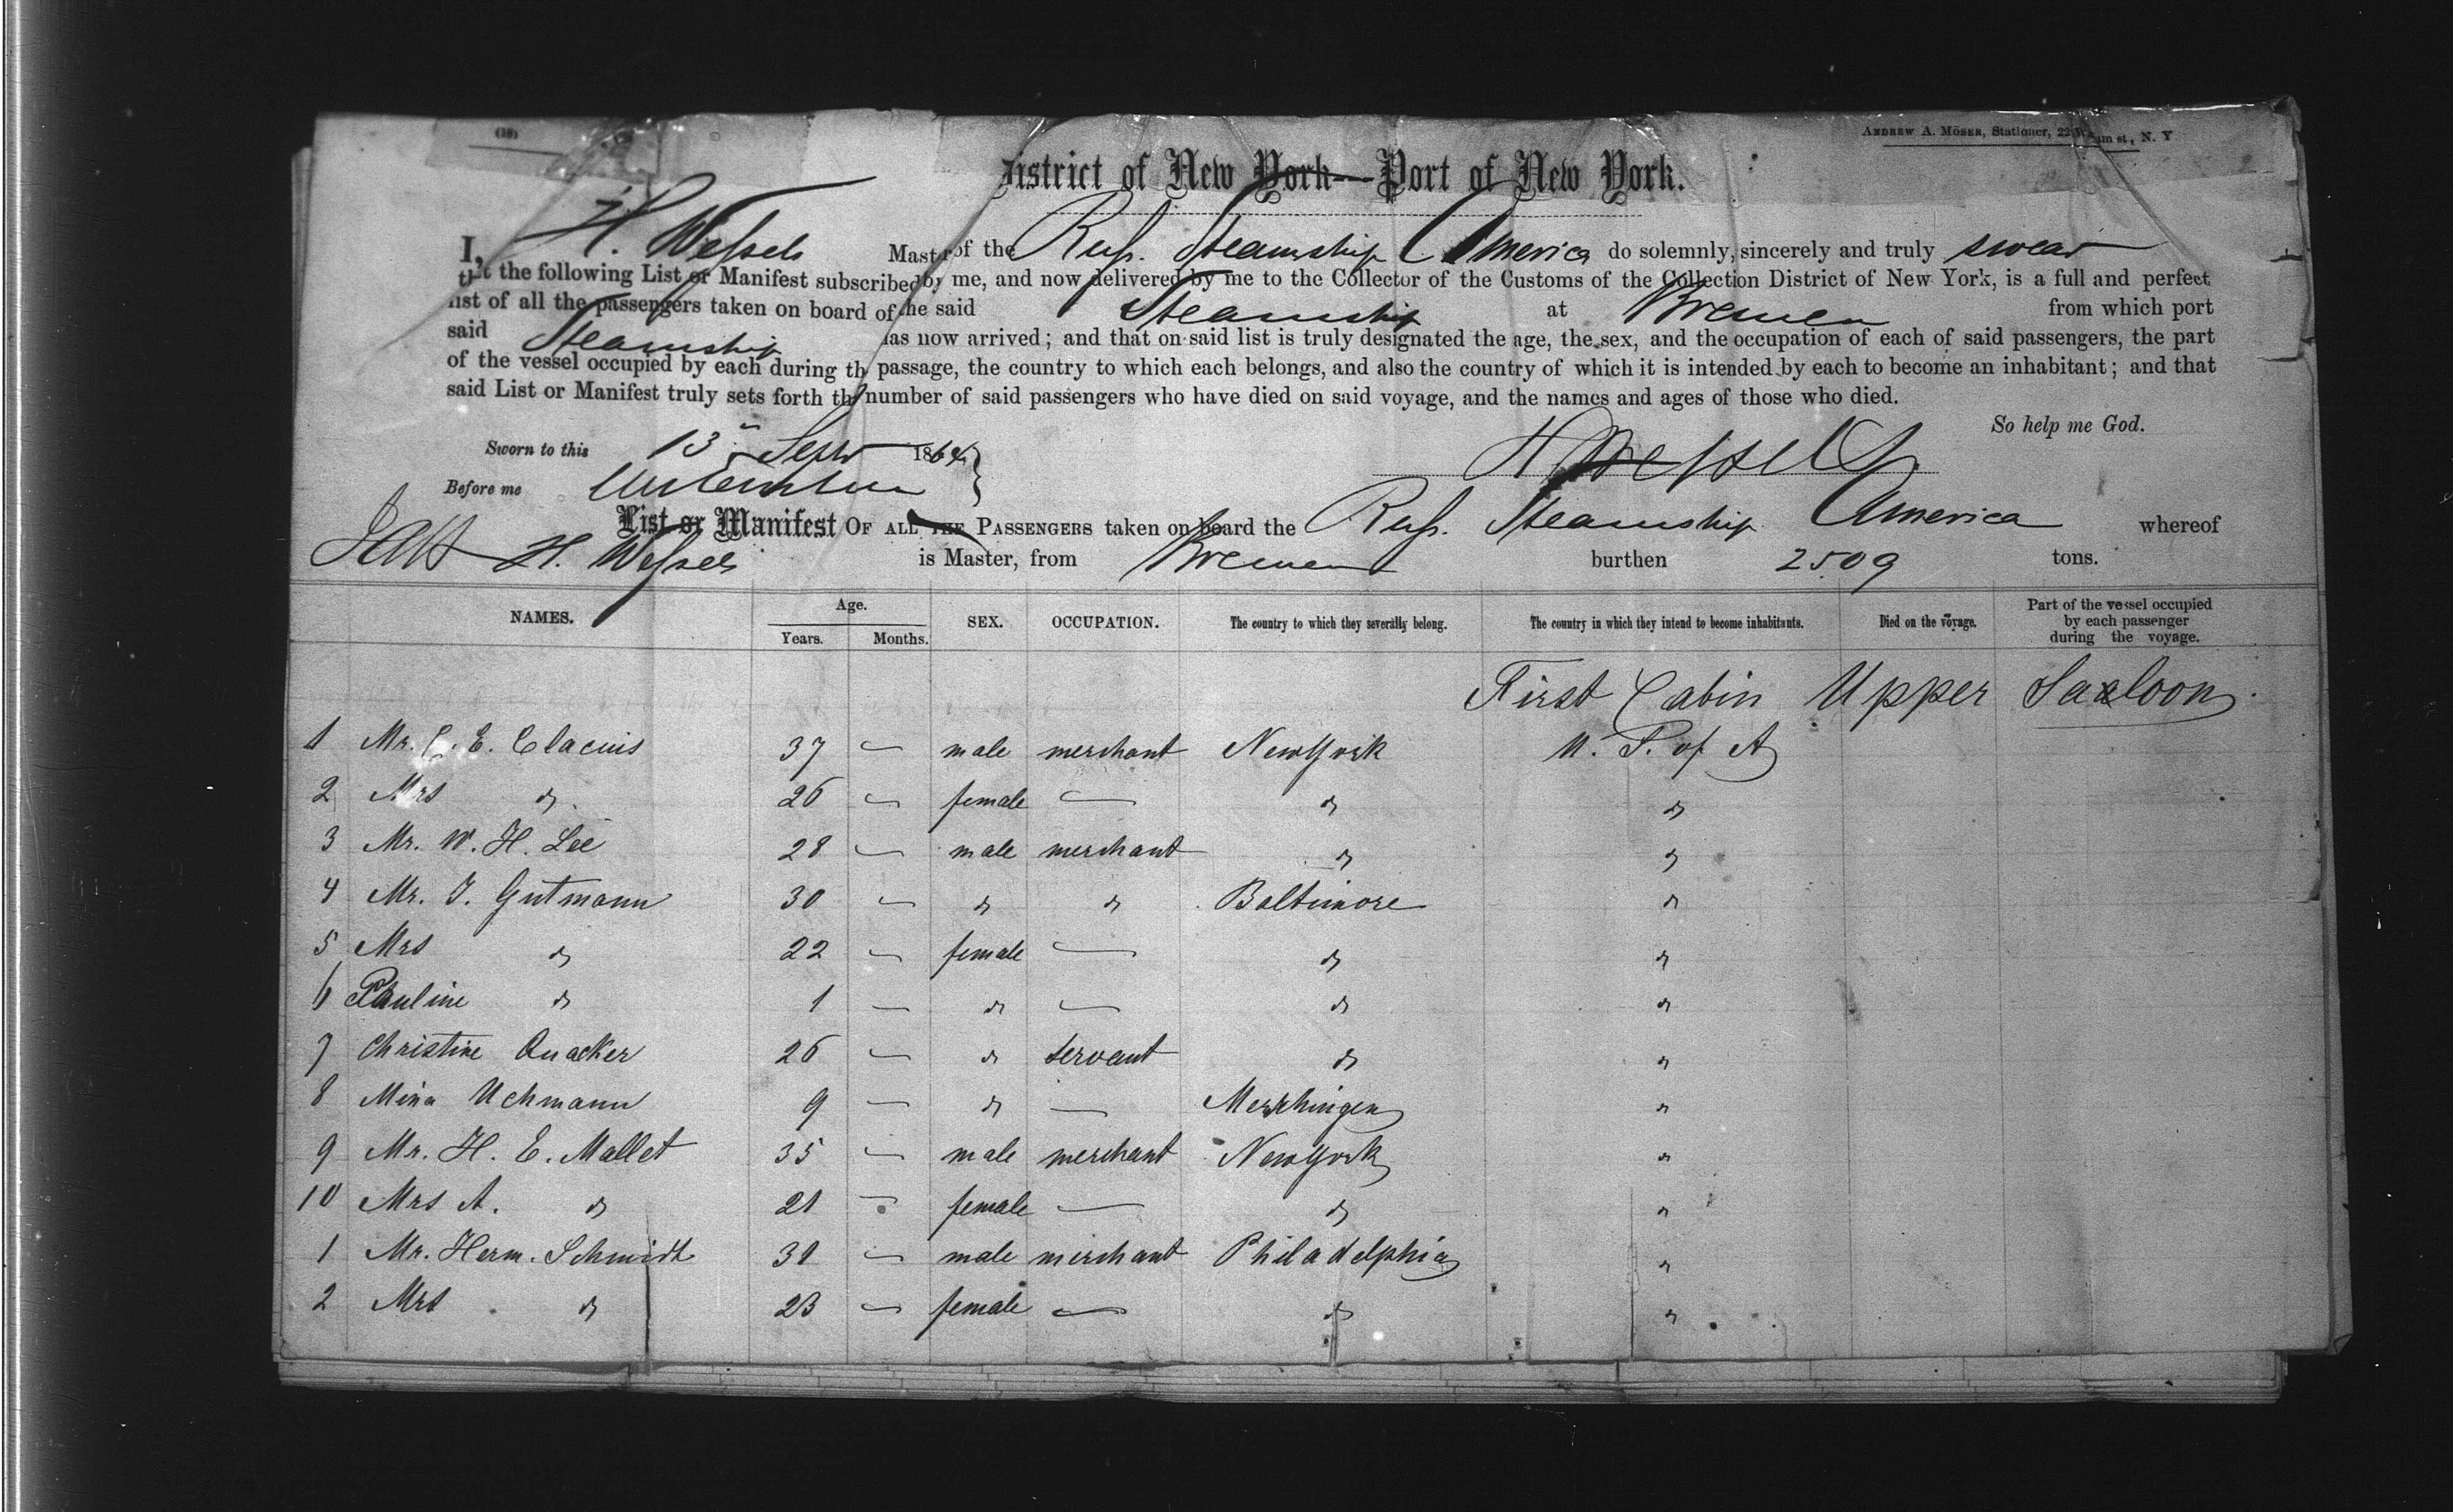 (18)
ANDREW A. MÖSER, Stationer, 22 st, N. Y.
District of New York—Port of New York.
I, H. Wessels Master of the Russ. Steamship America do solemnly, sincerely and truly swear
that the following List or Manifest subscribed by me, and now delivered by me to the Collector of the Customs of the Collection District of New York, is a full and perfect
list of all the passengers taken on board of the said Steamship at Bremen from which port
said Steamship has now arrived; and that on said list is truly designated the age, the sex, and the occupation of each of said passengers, the part
of the vessel occupied by each during the passage, the country to which each belongs, and also the country of which it is intended by each to become an inhabitant; and that
said List or Manifest truly sets forth the number of said passengers who have died on said voyage, and the names and ages of those who died.
So help me God.
Sworn to this 13 Sept 1864
Before me
H Wessels
List or Manifest OF ALL THE PASSENGERS taken on board the Russ. Steamship America whereof
H. Wessels is Master, from Bremen burthen 2509 tons.
NAMES. Age. Years. Months. SEX. OCCUPATION. The country to which they severally belong. The country in which they intend to become inhabitants. Died on the voyage. Part of the vessel occupied by each passenger during the voyage.
First Cabin Upper Saaloon.
1 Mr. C. E. Clacius 37 — male merchant New York U. S. of A
2 Mrs do 26 — female — do do
3 Mr. W. H. Lee 28 — male merchant do do
4 Mr. J. Gutmann 30 — do do Baltimore do
5 Mrs do 22 — female — do do
6 Pauline do 1 — do — do do
7 Christine Quacker 26 — do servant do do
8 Mina Uchmann 9 — do — Merchingen do
9 Mr. H. E. Mallet 35 — male merchant New York do
10 Mrs A. do 21 — female — do do
1 Mr. Herm. Schmidt 31 — male merchant Philadelphia do
2 Mrs do 23 — female — do do